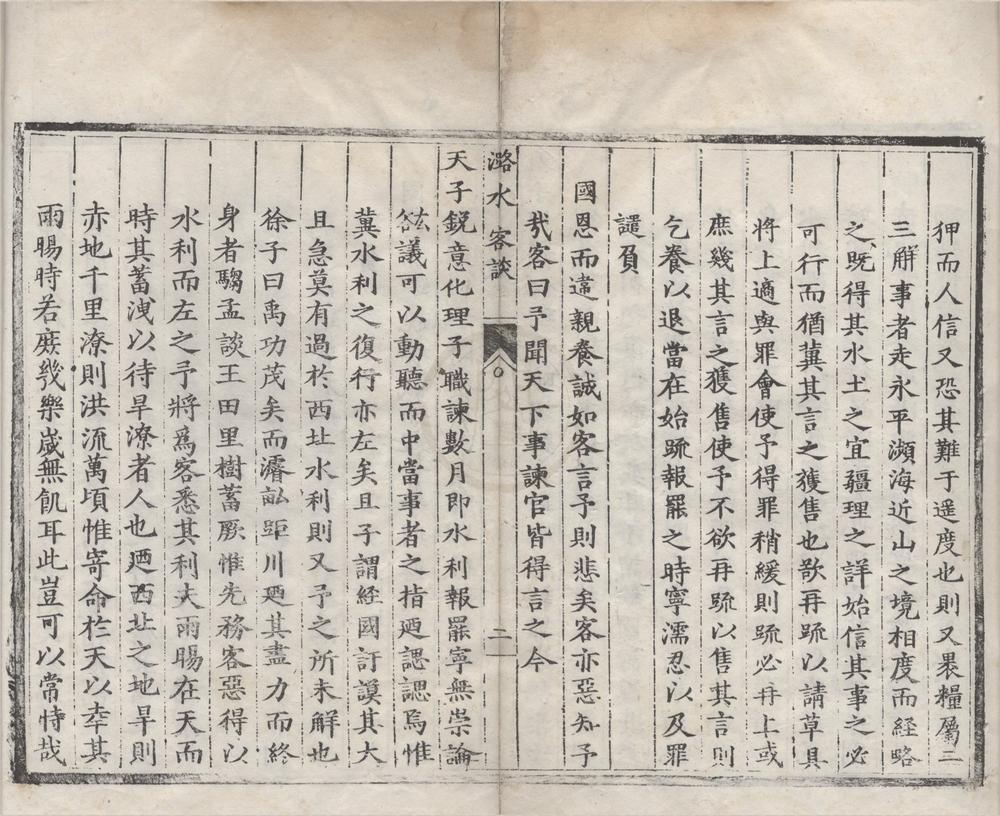 狎而人信又恐其難于遥度也則又褁糧屬二
三觧事者走永平瀕海近山之境相度而經略
之既得其水土之宜疆理之詳始信其事之必
可行而猶冀其言之獲售也欲再䟽以請草具
將上適與罪會使予得罪稍緩則䟽必再上或
庶幾其言之獲售使予不欲再䟽以售其言則
乞養以退當在始䟽報罷之時寧濡忍以及罪
譴負
國恩而違親養誠如客言予則悲矣客亦惡知予
㢤客曰予聞天下事諫官皆得言之今
潞水客談
二
天子鋭意化理子職諫數月即水利報罷寧無崇論
谹議可以動聽而中當事者之指廼諰諰焉惟
冀水利之復行亦左矣且子謂経國訂謨其大
且急莫有過於西北水利則又予之所未解也
徐子曰禹功茂矣而濬畝距川廼其盡力而終
身者騶孟談王田里樹蓄厥惟先務客惡得以
水利而左之予將爲客悉其利夫雨暘在天而
時其蓄洩以待旱潦者人也廼西北之地旱則
赤地千里潦則洪流萬頃惟寄命於天以幸其
雨暘時若庶幾樂嵗無飢耳此豈可以常恃哉